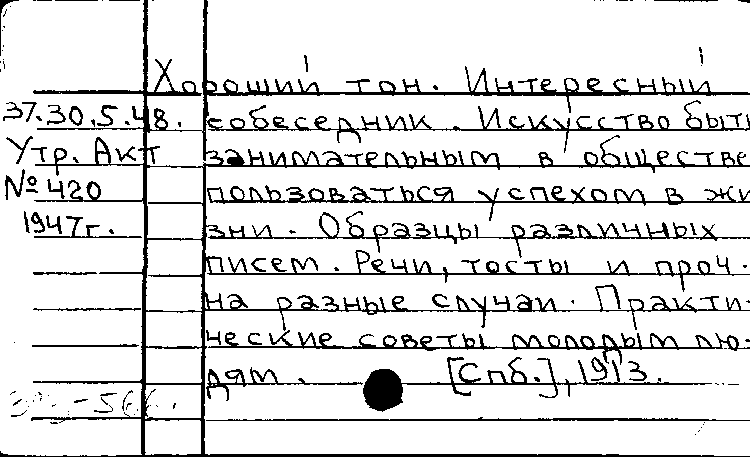 Хороший тон. Интересный
37.30.5.48. собеседник. Искусство быть
Утр. Акт занимательным в обществе
№ 420 пользоваться успехом в жи
1947г. зни. Образцы различных
писем. Речи, тосты и проч.
на разные случаи. Практи-
ческие советы молодым лю-
дям. [Спб.], 1913.